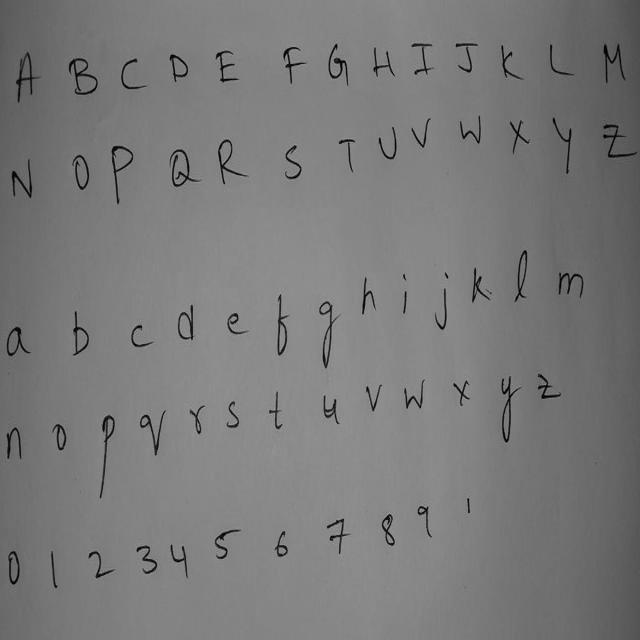 A B C D E F G H I J K L M
N O P Q R S T U V W X Y Z
a b c d e f g h i j k l m
n o p q r s t u v w x y z
0 1 2 3 4 5 6 7 8 9 '